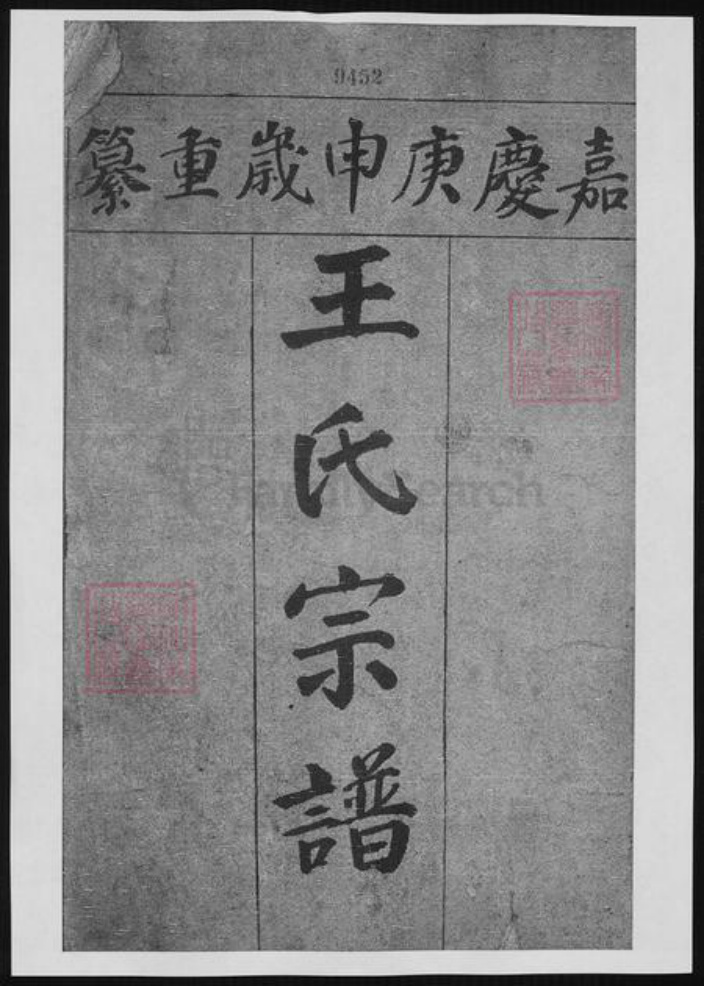 9452
嘉慶庚申歲重纂
王氏宗譜
FamilySearch